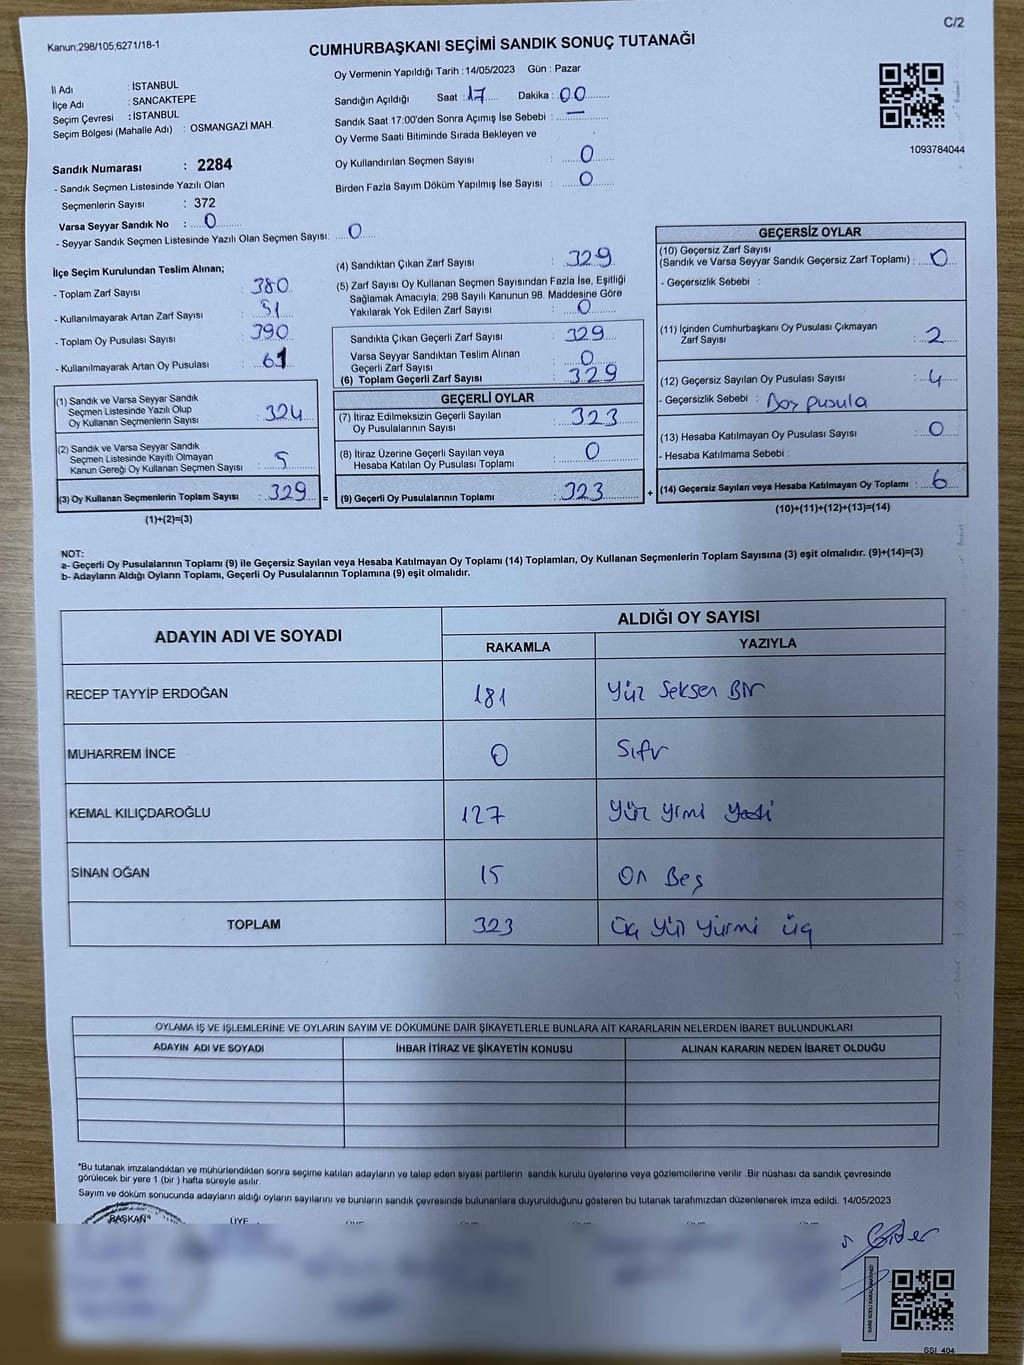 C/2
Kanun;298/105,6271/18-1
CUMHURBAŞKANI SEÇİMİ SANDIK SONUÇ TUTANAĞI
İl Adı : İSTANBUL
İlçe Adı : SANCAKTEPE
Seçim Çevresi : İSTANBUL
Seçim Bölgesi (Mahalle Adı) : OSMANGAZİ MAH.
Oy Vermenin Yapıldığı Tarih : 14/05/2023 Gün : Pazar
Sandığın Açıldığı Saat : 17 Dakika : 00
Sandık Saat 17:00'den Sonra Açımış İse Sebebi : —
Oy Verme Saati Bitiminde Sırada Bekleyen ve
Oy Kullandırılan Seçmen Sayısı : 0
Birden Fazla Sayım Döküm Yapılmış İse Sayısı : 0
1093784044
Sandık Numarası : 2284
- Sandık Seçmen Listesinde Yazılı Olan
Seçmenlerin Sayısı : 372
Varsa Seyyar Sandık No : 0
- Seyyar Sandık Seçmen Listesinde Yazılı Olan Seçmen Sayısı: 0
İlçe Seçim Kurulundan Teslim Alınan;
- Toplam Zarf Sayısı : 380
- Kullanılmayarak Artan Zarf Sayısı : 51
- Toplam Oy Pusulası Sayısı : 390
- Kullanılmayarak Artan Oy Pusulası : 61
(1) Sandık ve Varsa Seyyar Sandık
Seçmen Listesinde Yazılı Olup
Oy Kullanan Seçmenlerin Sayısı : 324
(2) Sandık ve Varsa Seyyar Sandık
Seçmen Listesinde Kayıtlı Olmayan
Kanun Gereği Oy Kullanan Seçmen Sayısı : 5
(3) Oy Kullanan Seçmenlerin Toplam Sayısı : 329 =
(1)+(2)=(3)
(4) Sandıktan Çıkan Zarf Sayısı : 329
(5) Zarf Sayısı Oy Kullanan Seçmen Sayısından Fazla İse, Eşitliği
Sağlamak Amacıyla; 298 Sayılı Kanunun 98. Maddesine Göre
Yakılarak Yok Edilen Zarf Sayısı : 0
Sandıkta Çıkan Geçerli Zarf Sayısı : 329
Varsa Seyyar Sandıktan Teslim Alınan
Geçerli Zarf Sayısı : 0
(6) Toplam Geçerli Zarf Sayısı : 329
GEÇERLİ OYLAR
(7) İtiraz Edilmeksizin Geçerli Sayılan
Oy Pusulalarının Sayısı : 323
(8) İtiraz Üzerine Geçerli Sayılan veya
Hesaba Katılan Oy Pusulası Toplamı : 0
(9) Geçerli Oy Pusulalarının Toplamı : 323 +
GEÇERSİZ OYLAR
(10) Geçersiz Zarf Sayısı
(Sandık ve Varsa Seyyar Sandık Geçersiz Zarf Toplamı) : 0
- Geçersizlik Sebebi :
(11) İçinden Cumhurbaşkanı Oy Pusulası Çıkmayan
Zarf Sayısı : 2
(12) Geçersiz Sayılan Oy Pusulası Sayısı : 4
- Geçersizlik Sebebi : Boş pusula
(13) Hesaba Katılmayan Oy Pusulası Sayısı : 0
- Hesaba Katılmama Sebebi :
(14) Geçersiz Sayılan veya Hesaba Katılmayan Oy Toplamı : 6
(10)+(11)+(12)+(13)=(14)
NOT:
a- Geçerli Oy Pusulalarının Toplamı (9) ile Geçersiz Sayılan veya Hesaba Katılmayan Oy Toplamı (14) Toplamları, Oy Kullanan Seçmenlerin Toplam Sayısına (3) eşit olmalıdır. (9)+(14)=(3)
b- Adayların Aldığı Oyların Toplamı, Geçerli Oy Pusulalarının Toplamına (9) eşit olmalıdır.
ADAYIN ADI VE SOYADI
ALDIĞI OY SAYISI
RAKAMLA YAZIYLA
RECEP TAYYİP ERDOĞAN 181 Yüz Seksen Bir
MUHARREM İNCE 0 Sıfır
KEMAL KILIÇDAROĞLU 127 Yüz yirmi yedi
SİNAN OĞAN 15 On Beş
TOPLAM 323 Üç Yüz Yirmi üç
OYLAMA İŞ VE İŞLEMLERİNE VE OYLARIN SAYIM VE DÖKÜMÜNE DAİR ŞİKAYETLERLE BUNLARA AİT KARARLARIN NELERDEN İBARET BULUNDUKLARI
ADAYIN ADI VE SOYADI İHBAR İTİRAZ VE ŞİKAYETİN KONUSU ALINAN KARARIN NEDEN İBARET OLDUĞU
*Bu tutanak imzalandıktan ve mühürlendikten sonra seçime katılan adayların ve talep eden siyasi partilerin sandık kurulu üyelerine veya gözlemcilerine verilir. Bir nüshası da sandık çevresinde
görülecek bir yere 1 (bir) hafta süreyle asılır.
Sayım ve döküm sonucunda adayların aldığı oyların sayılarını ve bunların sandık çevresinde bulunanlara duyurulduğunu gösteren bu tutanak tarafımızdan düzenlenerek imza edildi. 14/05/2023
BAŞKAN ÜYE
SSI_404